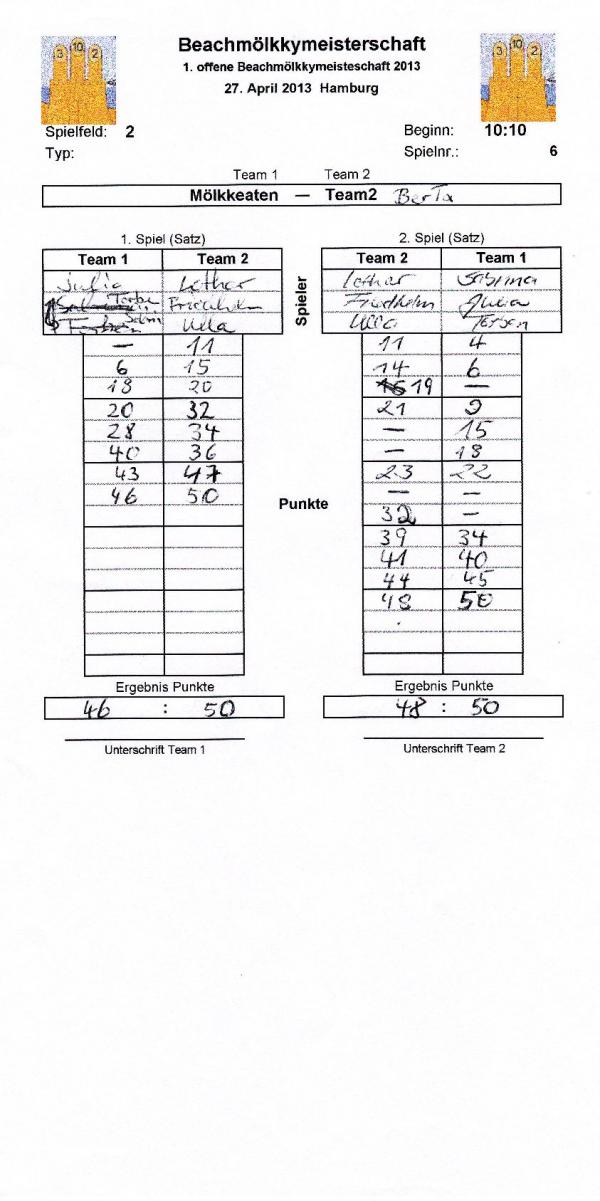 3 10 2
3 10 2
Beachmölkkymeisterschaft
1. offene Beachmölkkymeisteschaft 2013
27. April 2013 Hamburg
Spielfeld: 2
Beginn: 10:10
Typ:
Spielnr.: 6
Team 1 Team 2
Mölkkeaten — Team2 BerTa
1. Spiel (Satz)
Team 1 Team 2
Julia Lothar
Friedhelm
Ulla
— 11
6 15
18 20
20 32
28 34
40 36
43 47
46 50
Ergebnis Punkte
46 : 50
Unterschrift Team 1
Spieler
Punkte
2. Spiel (Satz)
Team 2 Team 1
Lothar Sabrina
Friedhelm Julia
Ulla Torben
11 4
14 6
19 —
21 9
— 15
— 18
23 22
— —
32 —
39 34
41 40
44 45
48 50
Ergebnis Punkte
48 : 50
Unterschrift Team 2